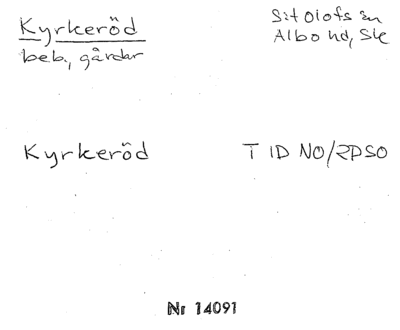 Kyrkeröd
beb., gårdar
S:t Olofs sn
Albo hd, Ske
Kyrkeröd
T ID NO/2DSO
Nr 14091